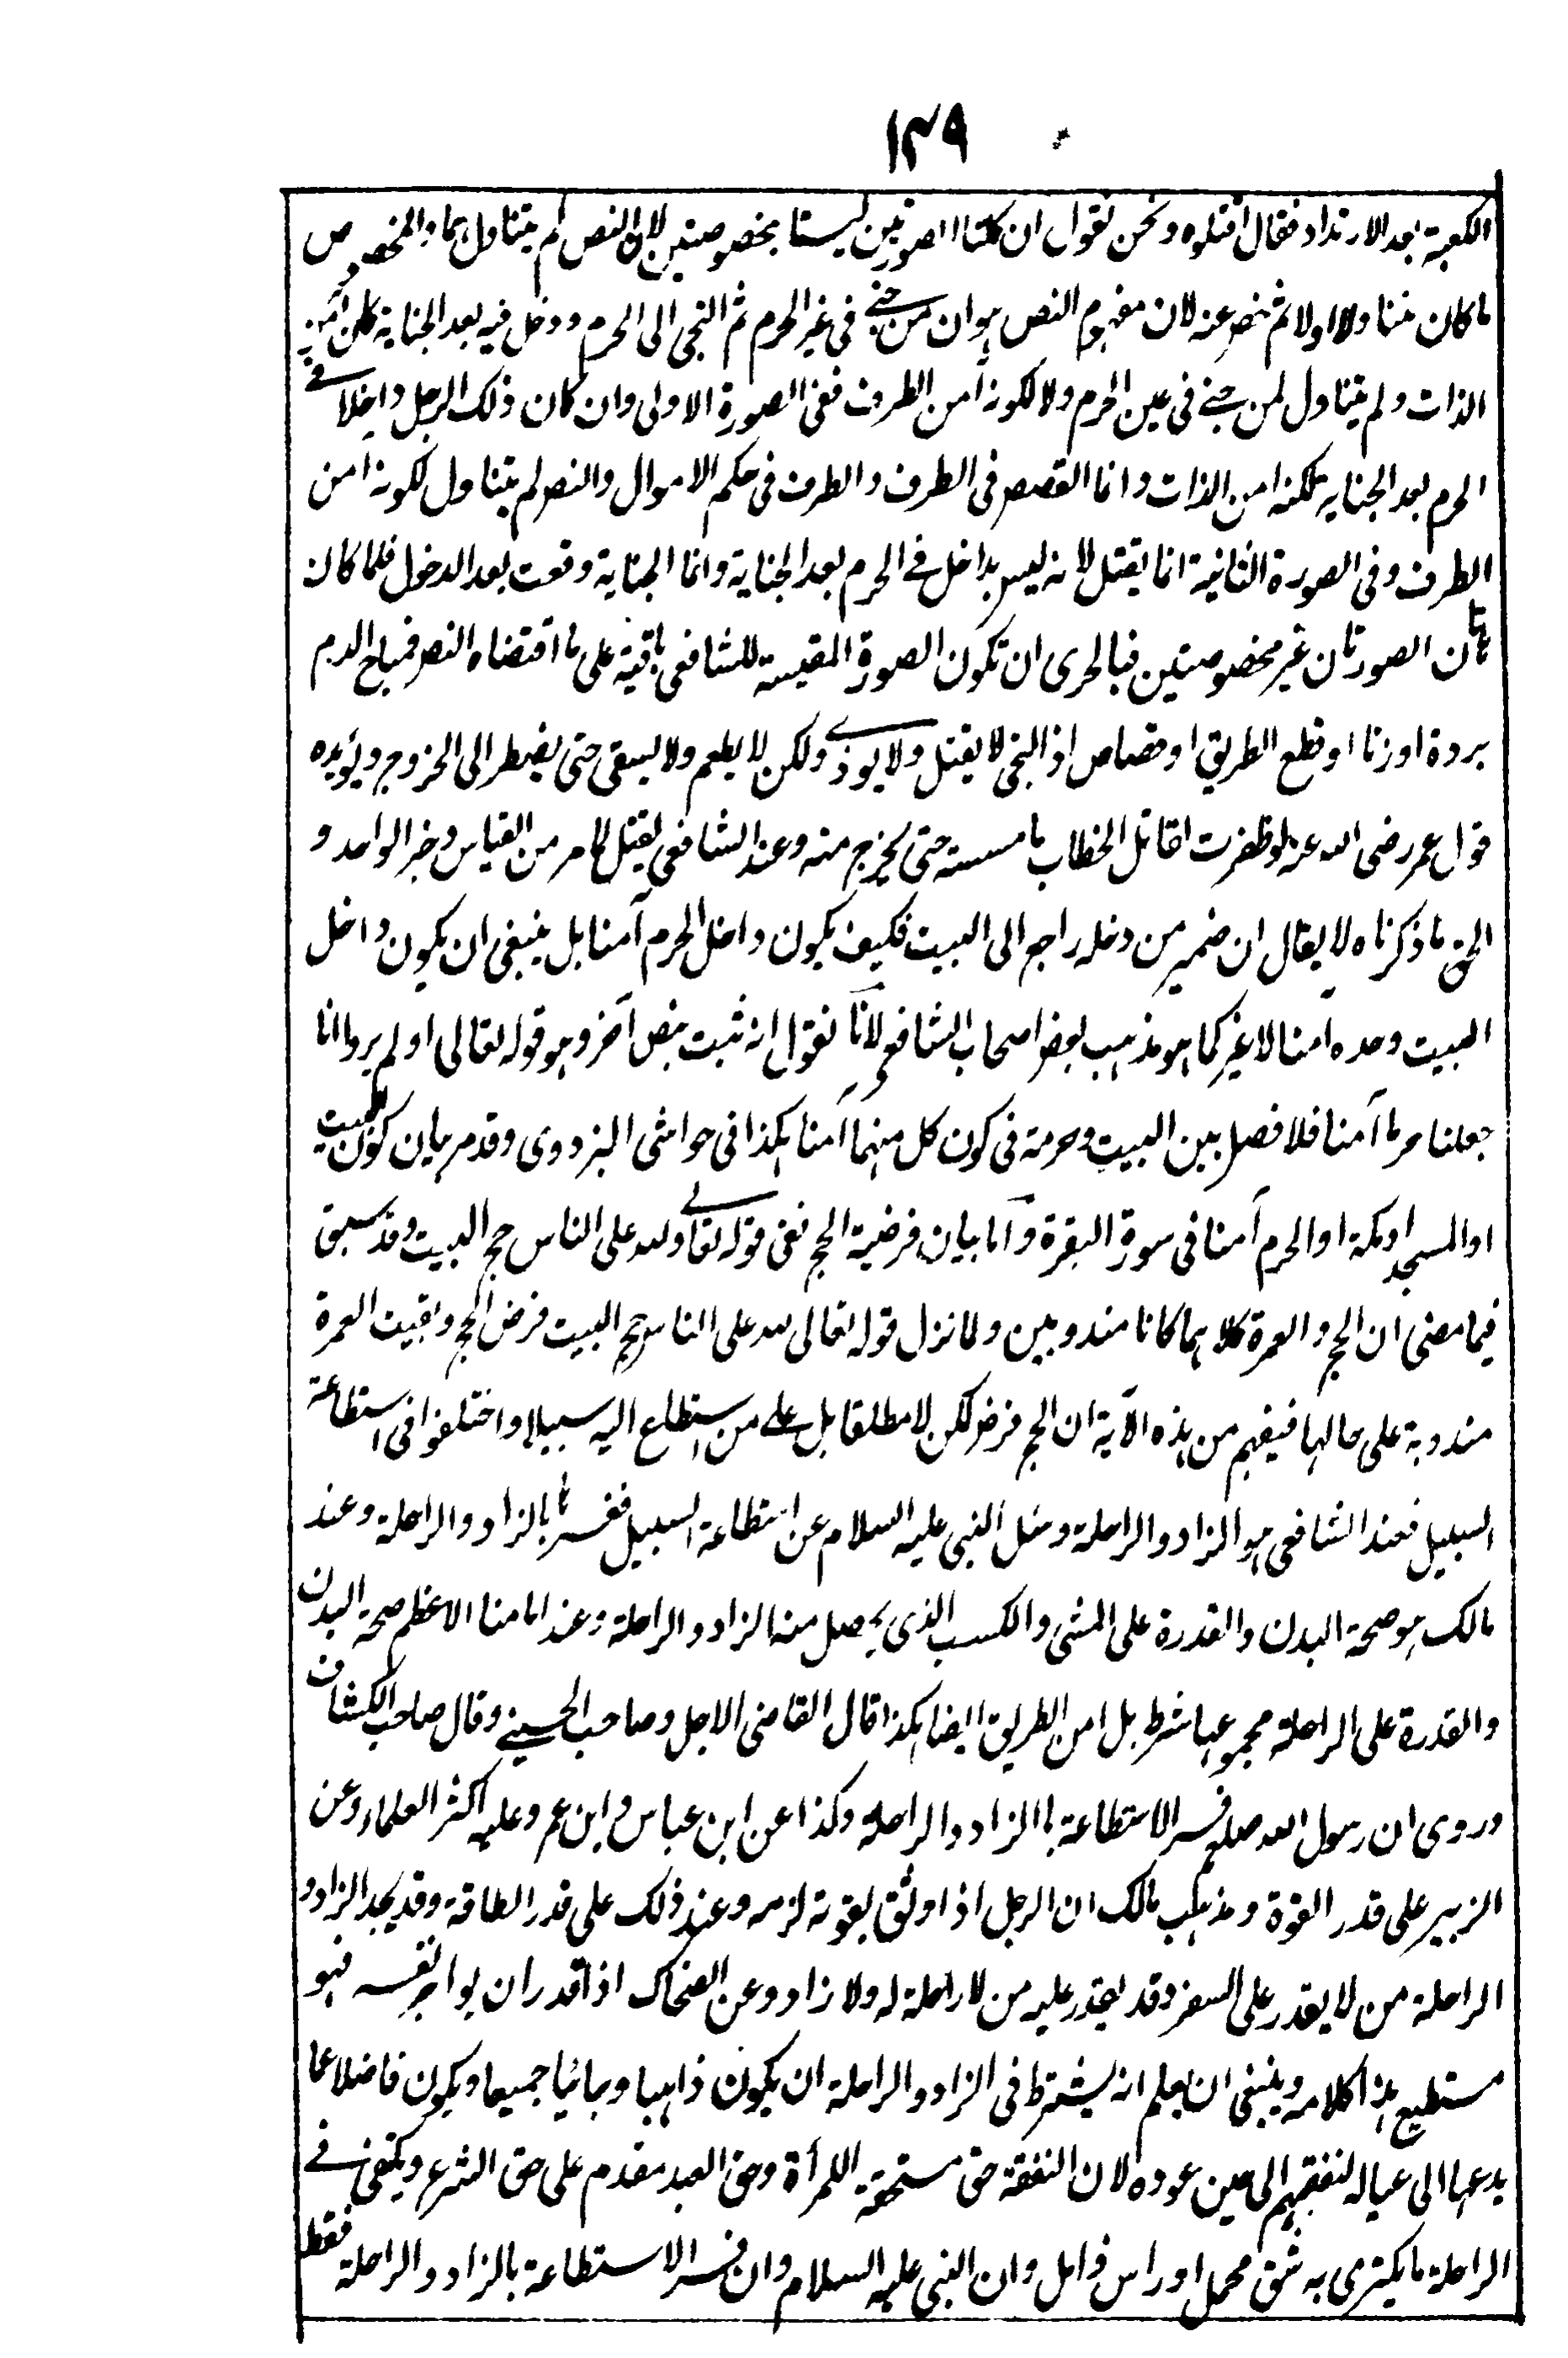 ١٣٩
الكعبة بعد الارتداد فقال اقتلوه ونحن نقول ان كلتا الصورتين ليستا بمخصوصتين لان النص لم يتناولهما والمخصوص
ما كان متناولا اولا ثم خص عنه لان مفهوم النص هو ان من جنى فى غير الحرم ثم التجى الى الحرم ودخل فيه بعد الجناية كان آمن
الذات ولم يتناول لمن جنى فى عين الحرم ولا لكونه آمن الطرف ففى الصورة الاولى وان كان ذلك الرجل داخلا فى
الحرم بعد الجناية لكنه امن الذات وانما القصص فى الطرف والطرف فى حكم الاموال والنص لم يتناول لكونه امن
الطرف وفى الصورة الثانية انما يقتل لانه ليس بداخل فى الحرم بعد الجناية وانما الجناية وقعت بعد الدخول فلما كان
هاتان الصورتان غير مخصوصتين فبالحرى ان تكون الصورة المقيسة للشافعى باقية على ما اقتضاه النص فمباح الدم
بردة او زنا او قطع الطريق او قصاص اذ التجى لا يقتل ولا يوذى ولكن لا يطعم ولا يسقى حتى يضطر الى الخروج ويؤيده
قول عمر رضى الله عنه لو ظفرت بقاتل الخطاب ما مسسته حتى يخرج منه وعند الشافعى يقتل لما مر من القياس وخبر الواحد و
الحق ما ذكرناه لا يقال ان ضمير من دخله راجع الى البيت فكيف يكون داخل الحرم آمنا بل ينبغى ان يكون داخل
البيت وحده امنا لا غير كما هو مذهب بعض اصحاب الشافعى لانا نقول انه ثبت بنص آخر وهو قوله تعالى اولم يروا انا
جعلنا حرما آمنا فلا فصل بين البيت وحرمه فى كون كل منهما آمنا هكذا فى حواشى البزدوى وقد مر بيان كون البيت
او المسجد او مكة او الحرم آمنا فى سورة البقرة واما بيان فرضية الحج ففى قوله تعالى ولله على الناس حج البيت وقد سبق
فيما مضى ان الحج والعمرة كلاهما كانا مندوبين ولما نزل قوله تعالى لله على الناس حج البيت فرض الحج وبقيت العمرة
مندوبة على حالها فيفهم من هذه الآية ان الحج فرض لكن لا مطلقا بل على من استطاع اليه سبيلا واختلفوا فى استطاعة
السبيل فعند الشافعى هو الزاد والراحلة وسئل النبى عليه السلام عن استطاعة السبيل ففسرها بالزاد والراحلة وعند
مالك هو صحة البدن والقدرة على المشى والكسب الذى يحصل منه الزاد والراحلة وعند امامنا الاعظم صحة البدن
والقدرة على الراحلة مجموعها شرط بل امن الطريق ايضا هكذا قال القاضى الاجل وصاحب الحسينى وقال صاحب الكشاف
وروى ان رسول الله صلعم فسر الاستطاعة بالزاد والراحلة وكذا عن ابن عباس وابن عمر وعليه اكثر العلماء وعن
الزبير على قدر القوة ومذهب مالك ان الرجل اذا وثق بقوته لزمه وعند ذلك على قدر الطاقة وقد يجد الزاد و
الراحلة من لا يقدر على السفر وقد يقدر عليه من لا راحلة له ولا زاد وعن الضحاك اذا قدر ان يواجر نفسه فهو
مستطيع هذا كلامه وينبغى ان يعلم انه يشترط فى الزاد والراحلة ان يكون ذاهبا وجائيا جميعا ويكون فاضلا عما
يدعها الى عياله لنفقتهم الى حين عوده لان النفقة حق مستحقة للمرأة وحق العبد مقدم على حق الشرع ويكفى فى
الراحلة ما يكترى به شق محمل او راس زامل وان النبى عليه السلام وان فسر الاستطاعة بالزاد والراحلة فقط